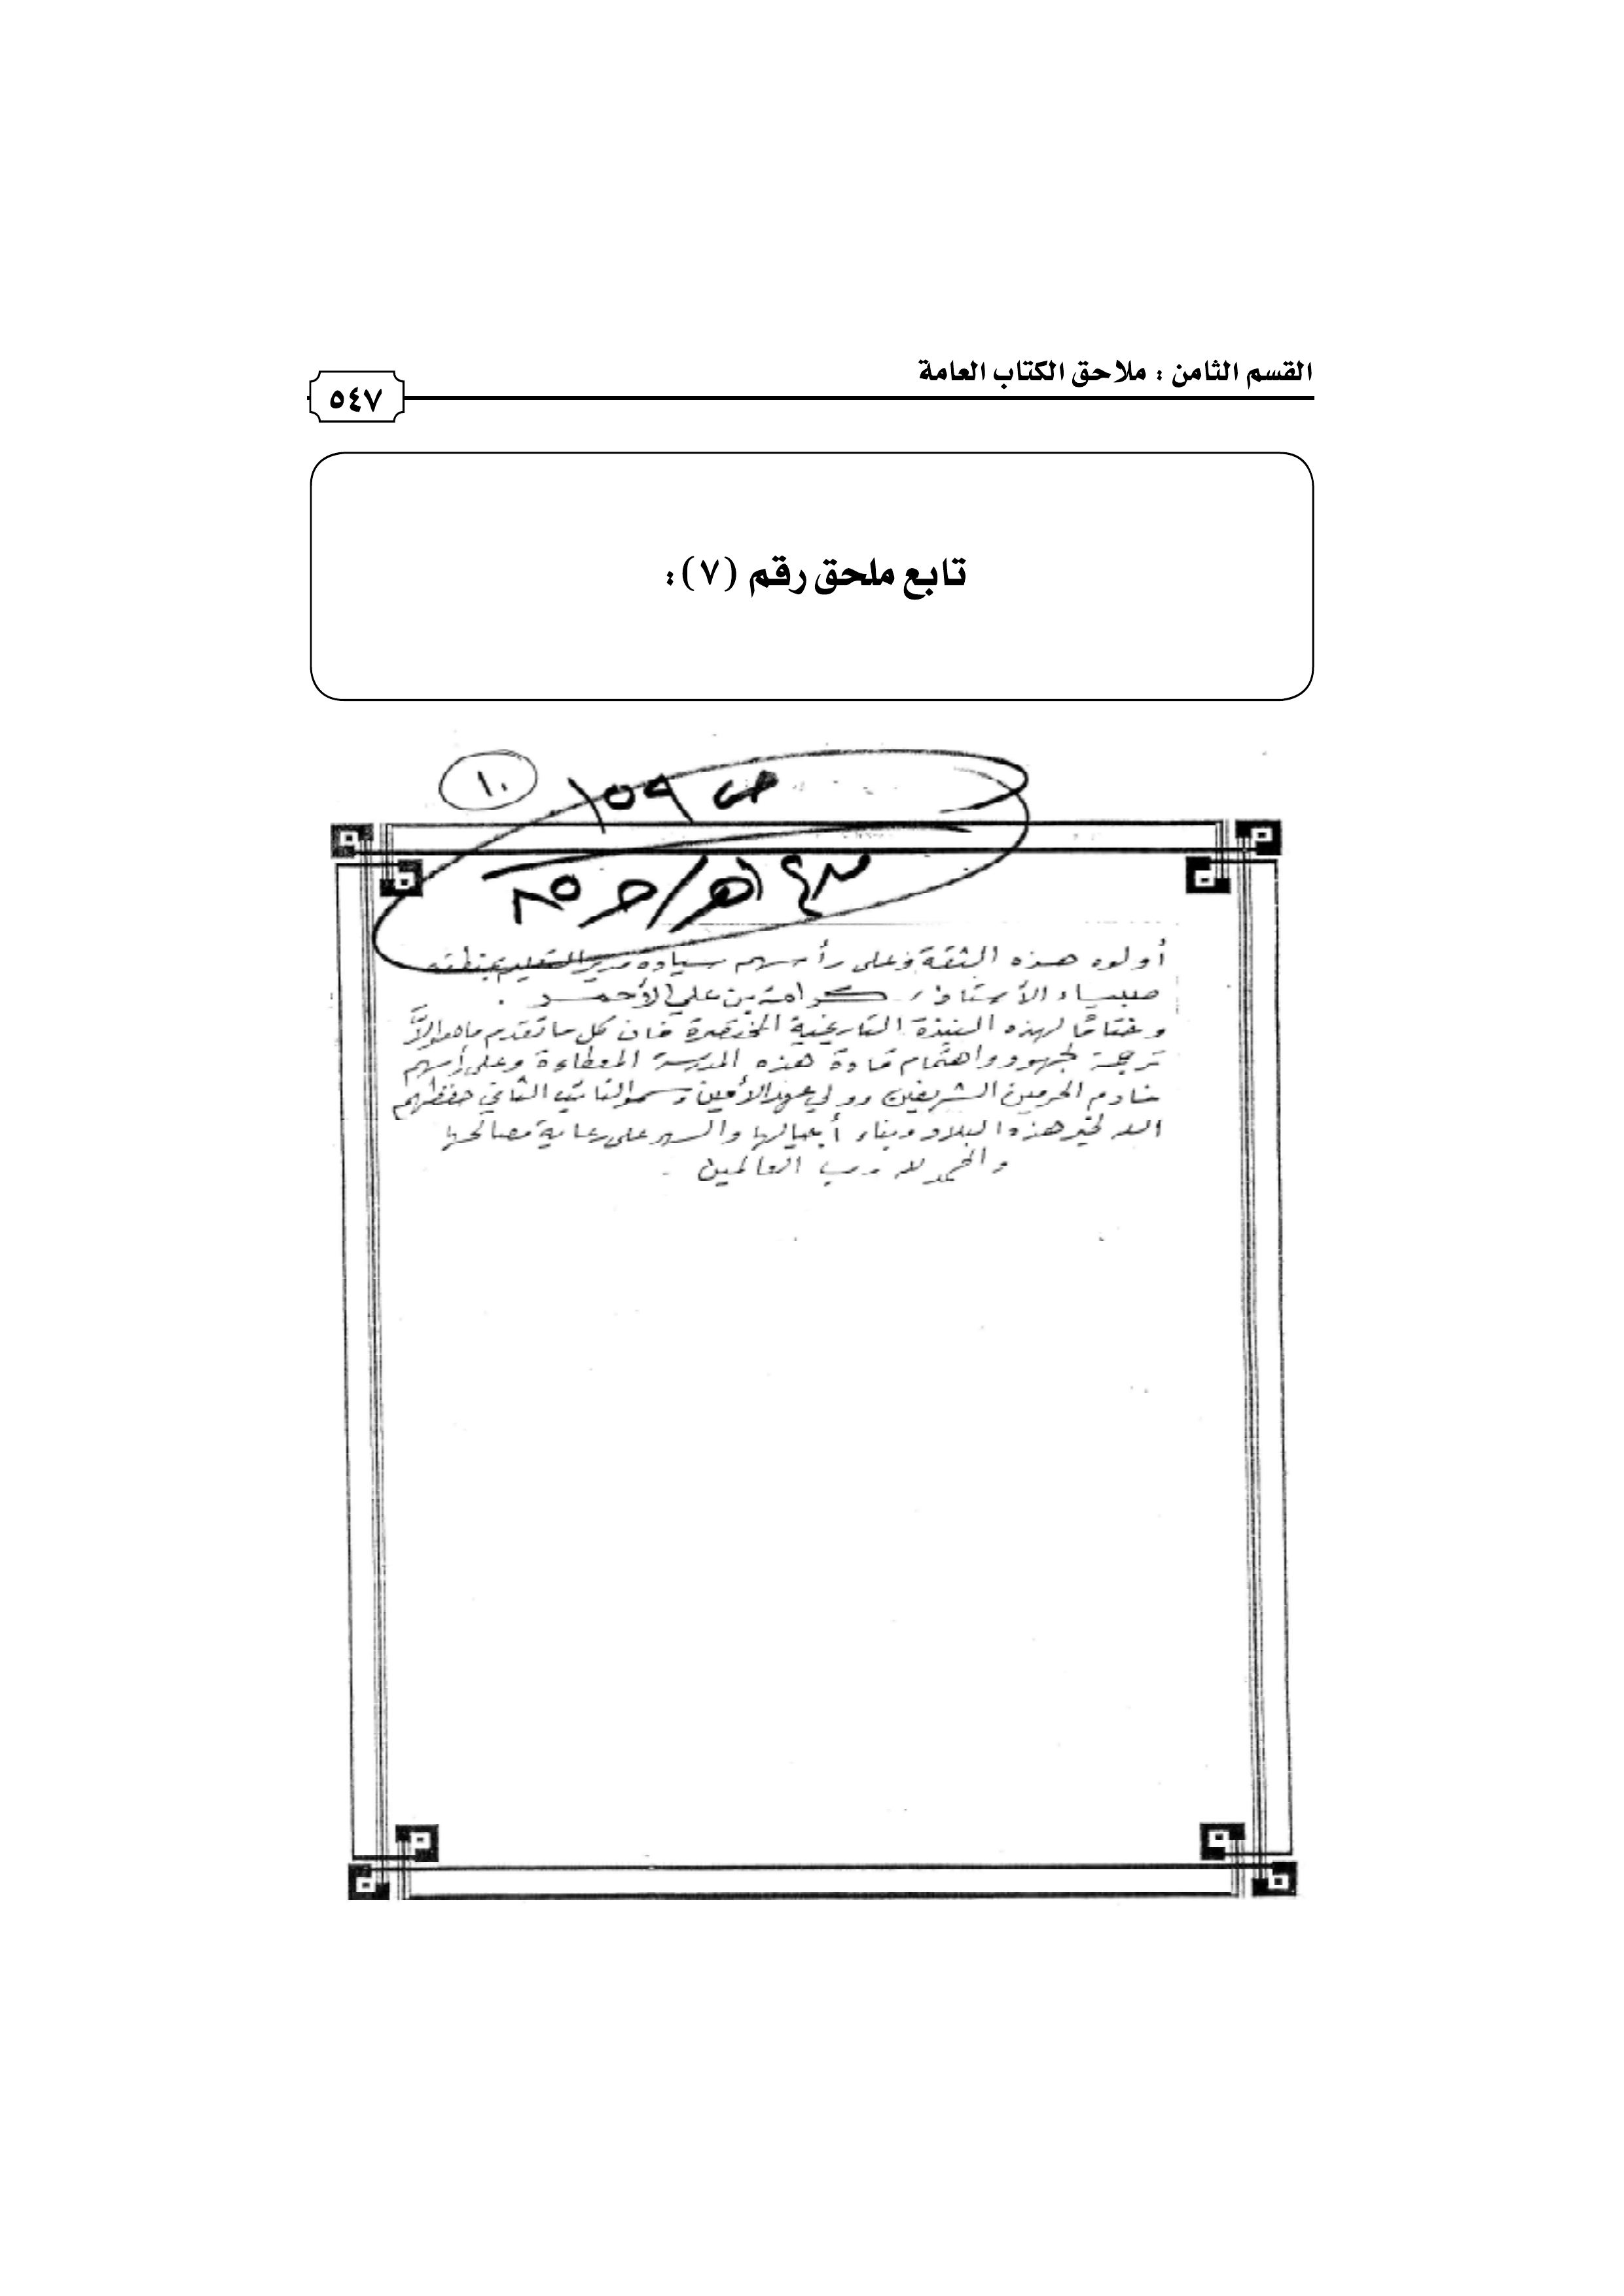 القسم الثامن : ملاحق الكتاب العامة
٥٤٧
تابع ملحق رقم (٧) :
١٠
ص ١٥٩
أولوه هذه الثقة وعلى رأسهم سيادة مدير التعليم بمنطقة
صبياء الأستاذ / كرامة بن علي الأحمد .
وختامًا لهذه النبذة التاريخية المختصرة فان كل ما تقدم ماهو إلاَّ
ترجمة لجهود واهتمام قادة هذه المعطاءة وعلى رأسهم
خادم الحرمين الشريفين وولي عهده الأمين وسمو النائب الثاني حفظهم
الله لخير هذه البلاد وبناء أجيالها والسهر على رعاية مصالحها
والحمد لله رب العالمين .